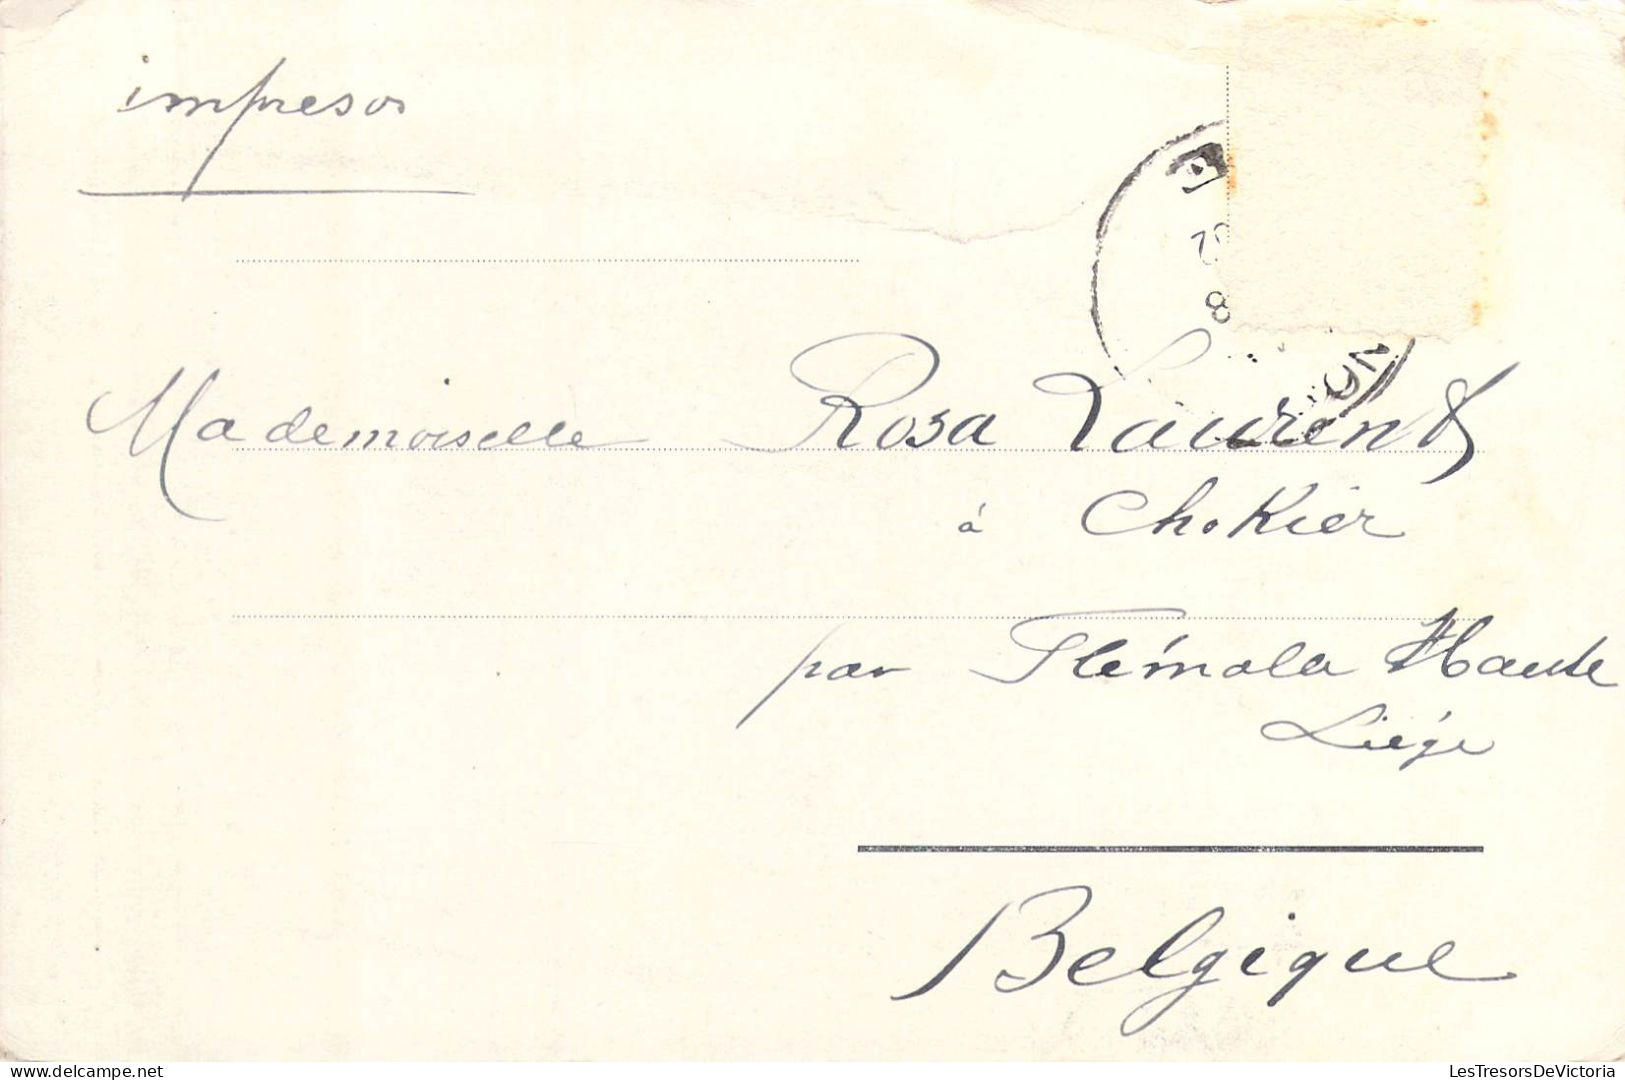 impresos
Mademoiselle Rosa Laurent
à Chokier
par Flémalle Haute
Liége
Belgique
www.delcampe.net
LesTresorsDeVictoria